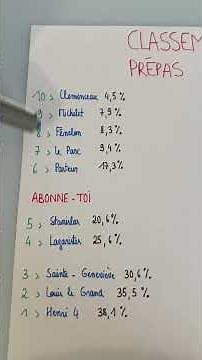 CLASSEM
PRÉPAS
10 > Clemenceau 4,5 %
9 > Michelet 7,9 %
8 > Fénelon 8,3 %
7 > Le Parc 9,4 %
6 > Pasteur 17,3 %
ABONNE-TOI
5 > Stanislas 20,6 %
4 > Lagarites 25,6 %
3 > Sainte-Geneviève 30,6 %
2 > Louis le Grand 35,5 %
1 > Henri 4 38,1 %